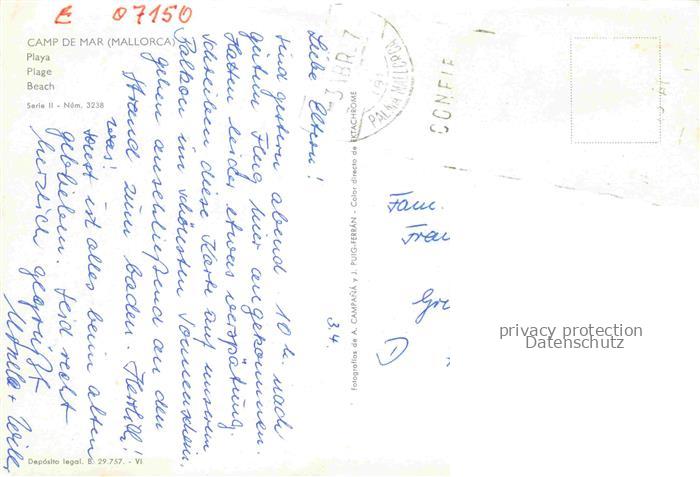 E 07150
CAMP DE MAR (MALLORCA)
Playa
Plage
Beach
Serie II - Núm. 3238
3.4.
Liebe Eltern!
sind gestern abend 10 h. nach
gutem Flug hier angekommen.
Hatten leider etwas Verspätung.
Schreiben diese Karte auf unserem
Balkon im schönsten Sonnenschein,
gehen anschließend an den
Strand zum baden. Herrlich!
was!
Sonst ist alles beim alten
geblieben. Seid recht
herzlich gegrüßt
+ Willi
Depósito legal. B. 29.757. - VI
Fotografías de A. CAMPAÑÁ y J. PUIG-FERRÁN - Color directo de EKTACHROME
PALMA MALLORCA
CONFIE
Fam.
Frau
Gre
D
privacy protection
Datenschutz